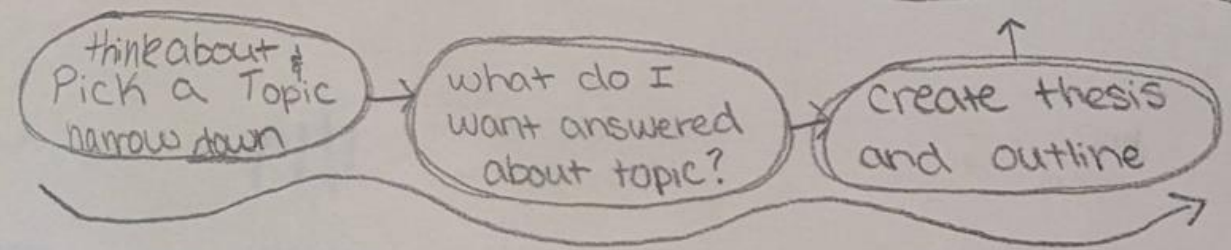 think about &
Pick a Topic
narrow down
what do I
want answered
about topic?
create thesis
and outline